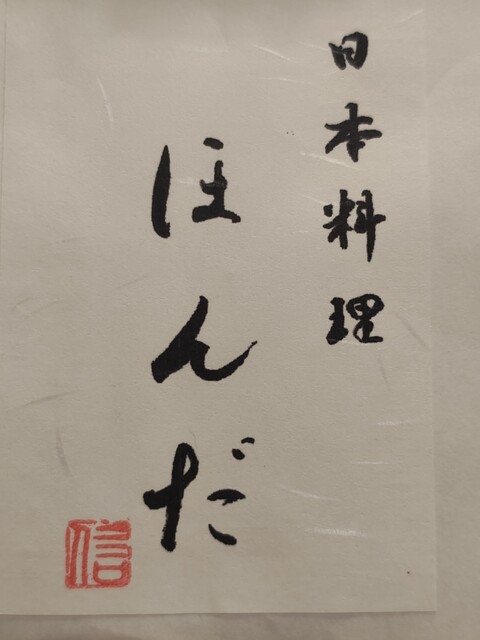 日本料理
ほんだ
信